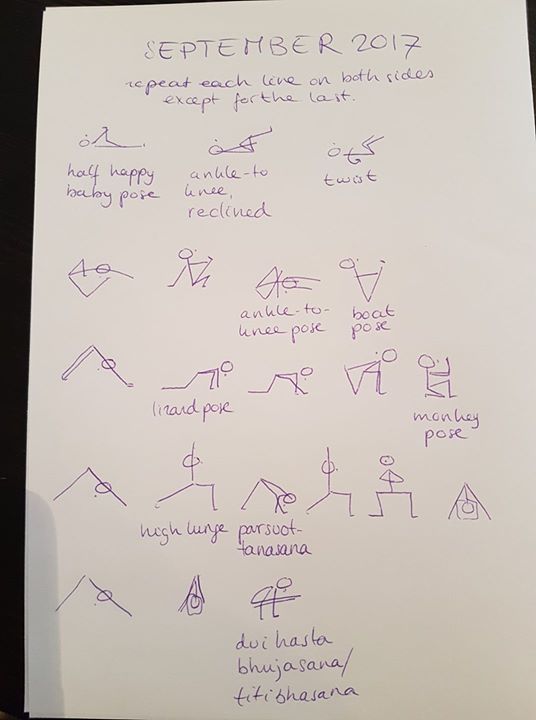 SEPTEMBER 2017
repeat each line on both sides
except for the last.
half happy
baby pose
ankle-to
knee,
reclined
twist
ankle-to-
knee pose
boat
pose
lizard pose
monkey
pose
high lunge
parsvot-
tanasana
dvi hasta
bhujasana/
titibhasana